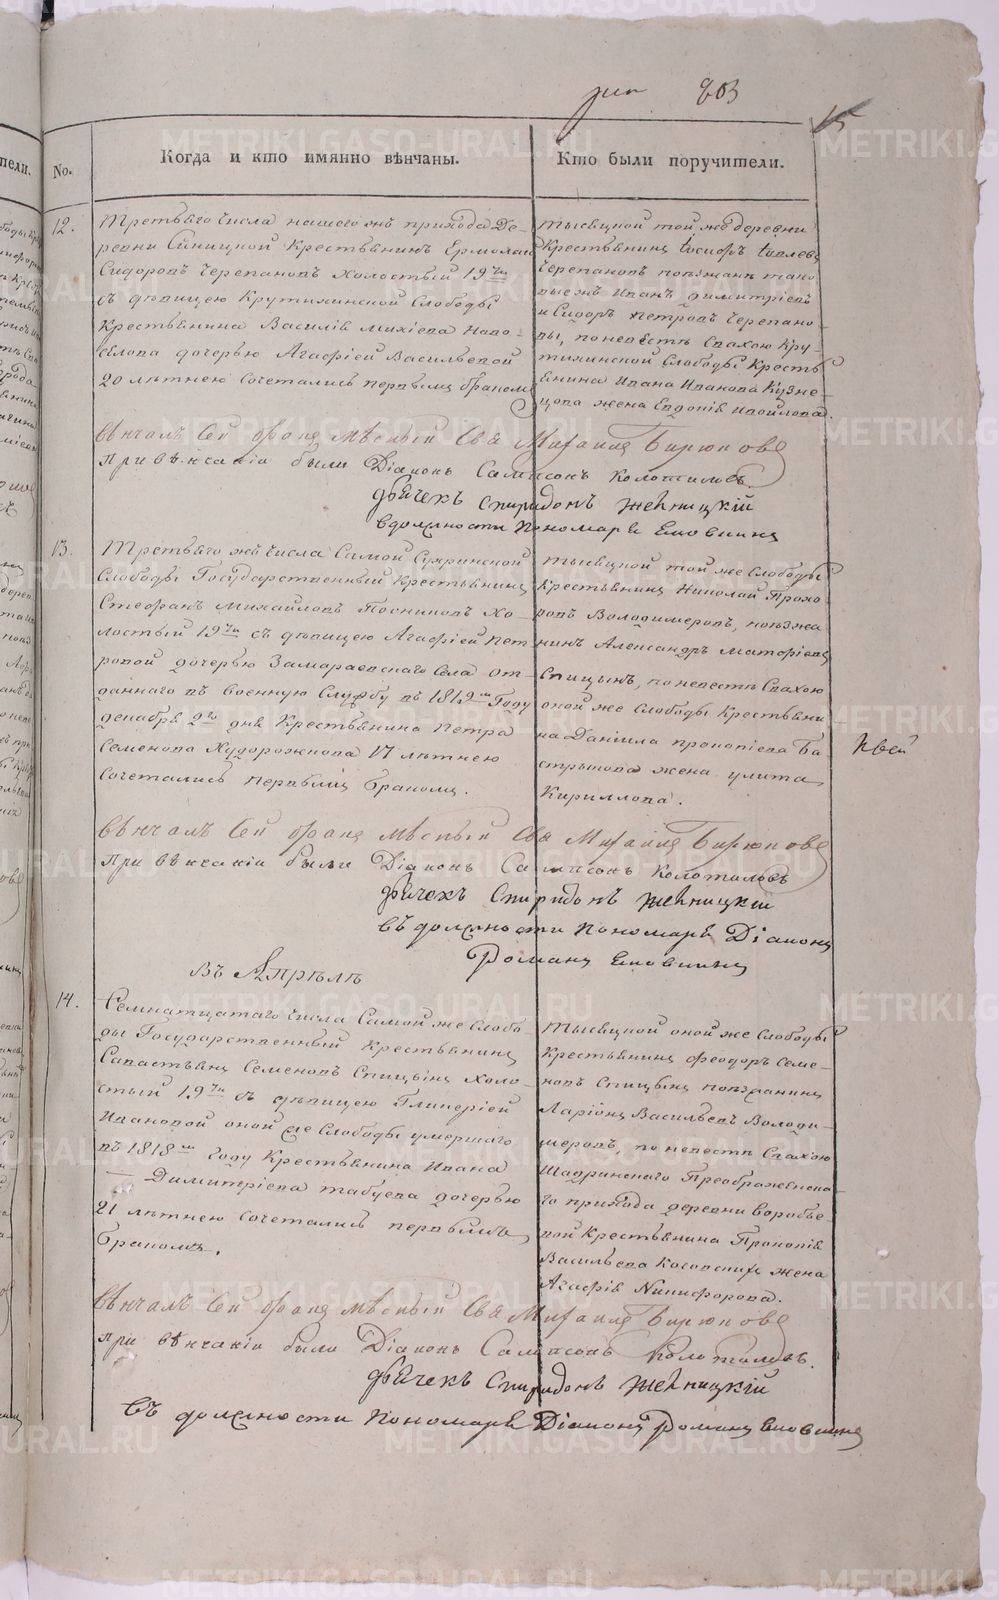 803
15
No.
Когда и кто имянно вѣнчаны.
Кто были поручители.
12.
Третьяго числа нашего жъ прихода Де-
ревни Синицкой Крестьянинъ Ермолай
Сидоровъ Черепановъ холостый 19ти
съ дѣвицею Крутихинской Слободы
Крестьянина Василія Михіева Ново-
селова дочерью Агафіей Васильевой
20 лѣтнею сочетались первымъ бракомъ
тысяцкой той же деревни
Крестьянинъ Іосифъ Іовлевъ
Черепановъ поѣзжане тако
выежъ Иванъ Димитріевъ
и Сидоръ Петровъ Черепано-
вы, по невѣстѣ Свахою Кру-
тихинской Слободы Кресть
янина Ивана Иванова Кузне-
цова жена Евдокія Изоилова.
Вѣнчалъ Сей бракъ мѣстный Свя Михаилъ Бирюковъ
При вѣнчаніи были Діаконъ Сампсонъ Колотиловъ
Дьячекъ Спиридонъ Жетницкій
в должности Пономаря Словцовъ
13.
Третьяго же числа Самой Сухринской
Слободы Государственный Крестьянинъ
Стефанъ Михайловъ Постниковъ хо-
лостый 19ти съ дѣвицею Агафіей Пет
ровой дочерью Замараевскаго Села от-
даннаго въ военную Службу въ 1812мъ Году
декабря 9го дня Крестьянина Петра
Семенова Худорожкова 17 лѣтнею
Сочетались первымъ бракомъ.
тысяцкой той же Слободы
Крестьянинъ Николай Прохо
ровъ Володимеровъ, поѣзжа
нинъ Александръ Матфіевъ
Спицынъ, по невѣстѣ Свахою
оной же Слободы Крестьяни
на Даніила Прокопіева Ба
стрыкова жена улита
Кириллова.
Вѣнчалъ Сей бракъ мѣстный Свя Михаилъ Бирюковъ
При вѣнчаніи были Діаконъ Сампсонъ Колотиловъ
Дьячекъ Спиридонъ Жетницкій
въ должности Пономаря Діаконъ
Романъ Словцовъ
Въ Апрѣлѣ
14.
Семнатцатаго числа Самой же Слобо-
ды Государственный Крестьянинъ
Савастьянъ Семеновъ Спицынъ холо-
стый 19ти съ дѣвицею Гликеріей
Ивановой оной же Слободы умершаго
въ 1818мъ году Крестьянина Ивана
Димитріева табуева дочерью
21 лѣтнею сочетались первымъ
бракомъ.
тысяцкой оной же Слободы
Крестьянинъ Феодоръ Семе-
новъ Спицынъ поѣзжанинъ
Ларіонъ Васильевъ Володи-
меровъ, по невѣстѣ Свахою
Шадринскаго Преображенска-
го прихода деревни Воробье-
вой Крестьянина Прокопія
Васильева Косовскихъ жена
Агафія Никифорова.
Вѣнчалъ Сей бракъ мѣстный Свя Михаилъ Бирюковъ
при вѣнчаніи были Діаконъ Сампсонъ Колотиловъ.
Дьячекъ Спиридонъ Жетницкій
въ должности Пономаря Діаконъ Романъ Словцовъ
METRIKI.GASO-URAL.RU